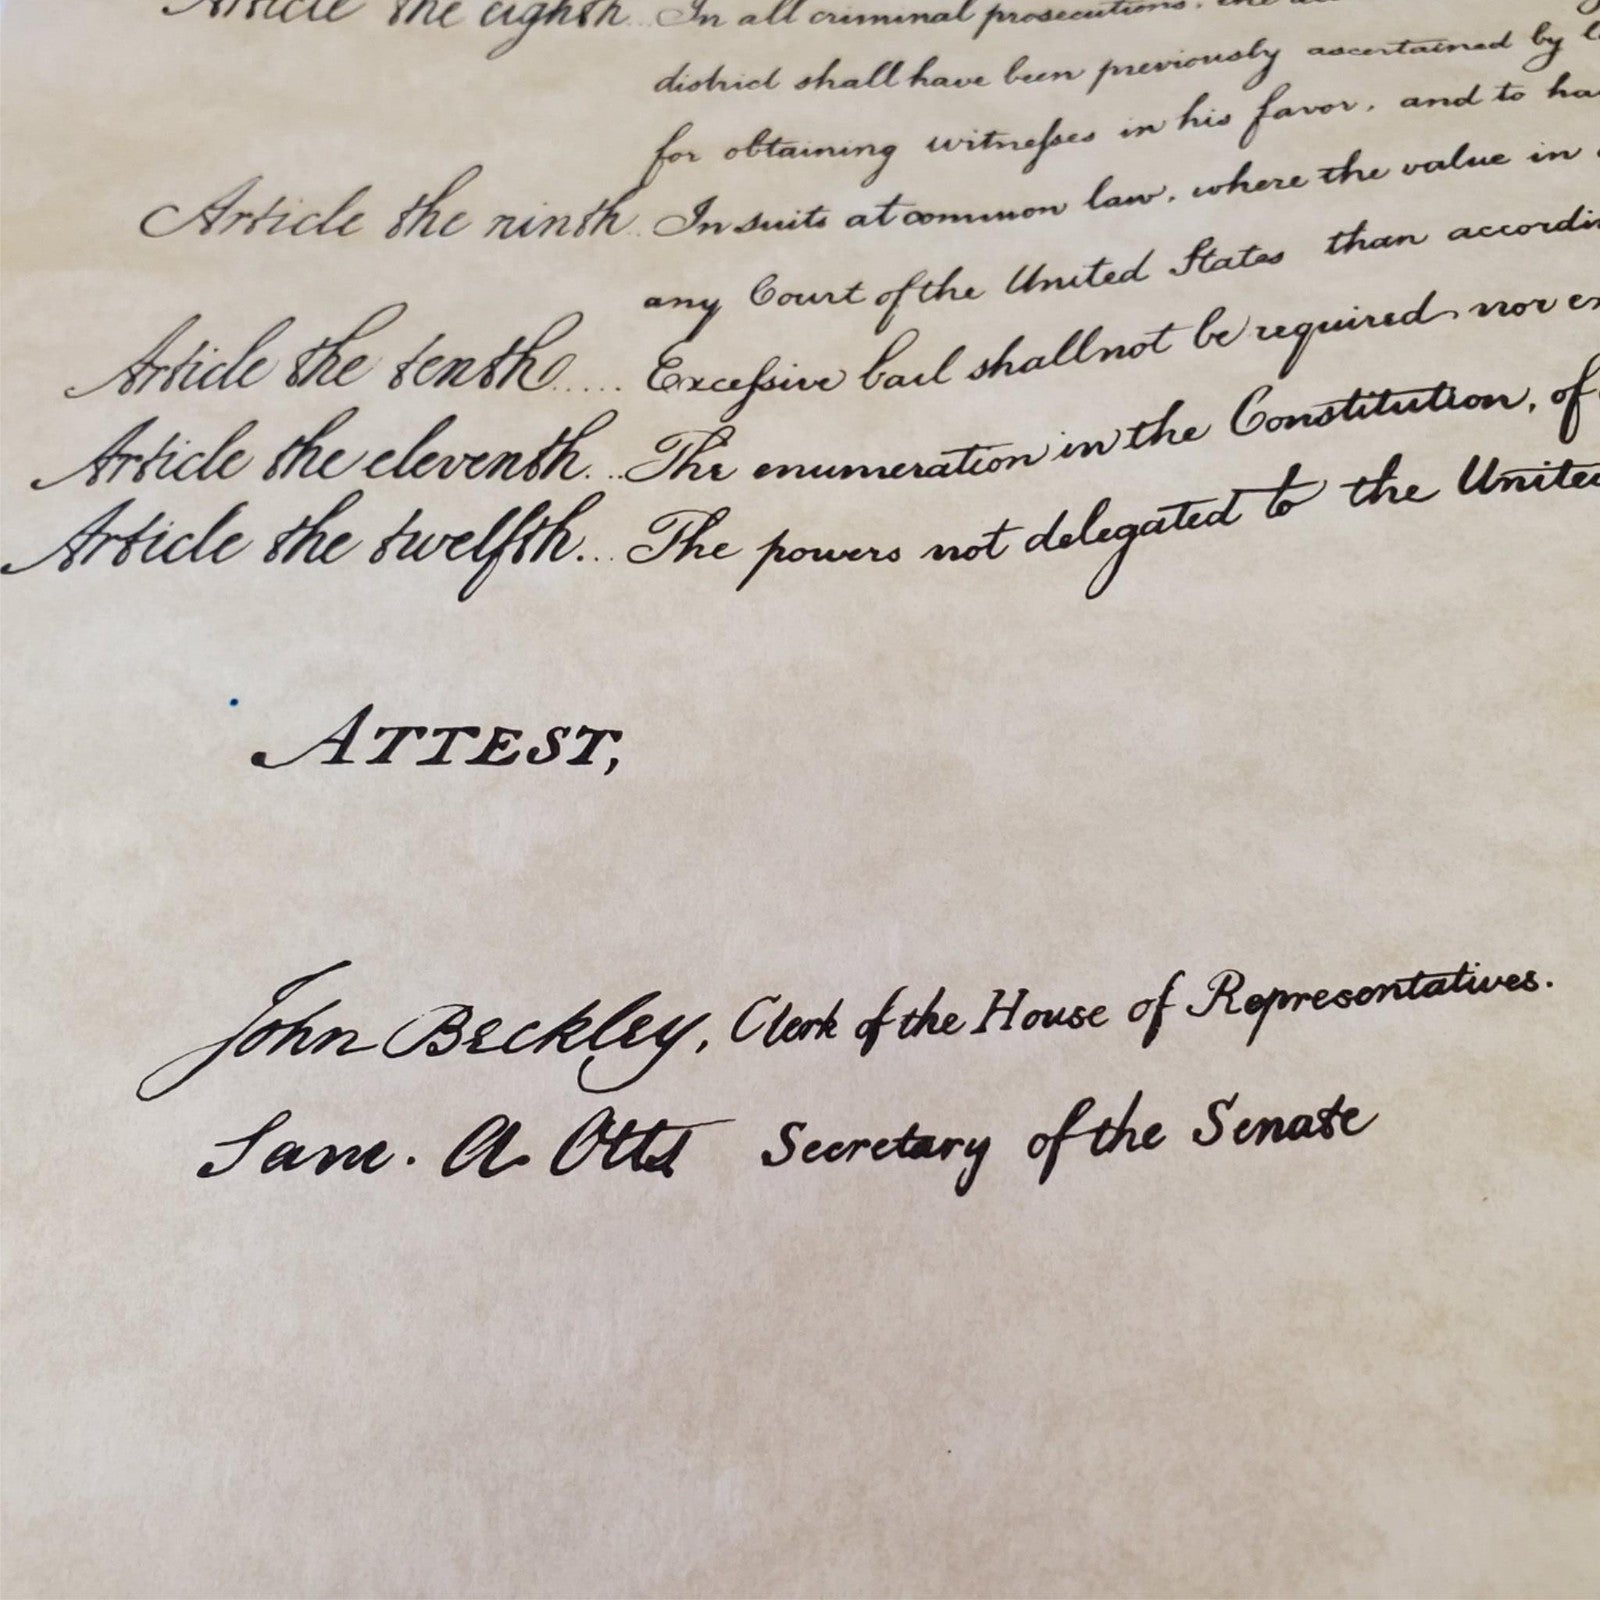 Article the eighth.. In all criminal prosecutions, the
district shall have been previously ascertained by
for obtaining witneſses in his favor, and to
Article the ninth.. In suits at common law, where the value in
any Court of the United States than
Article the tenth..... Exceſsive bail shall not be required, nor
Article the eleventh... The enumeration in the Constitution, of
Article the twelfth... The powers not delegated to the United
ATTEST,
John Beckley, Clerk of the House of Representatives.
Sam. A. Otis Secretary of the Senate